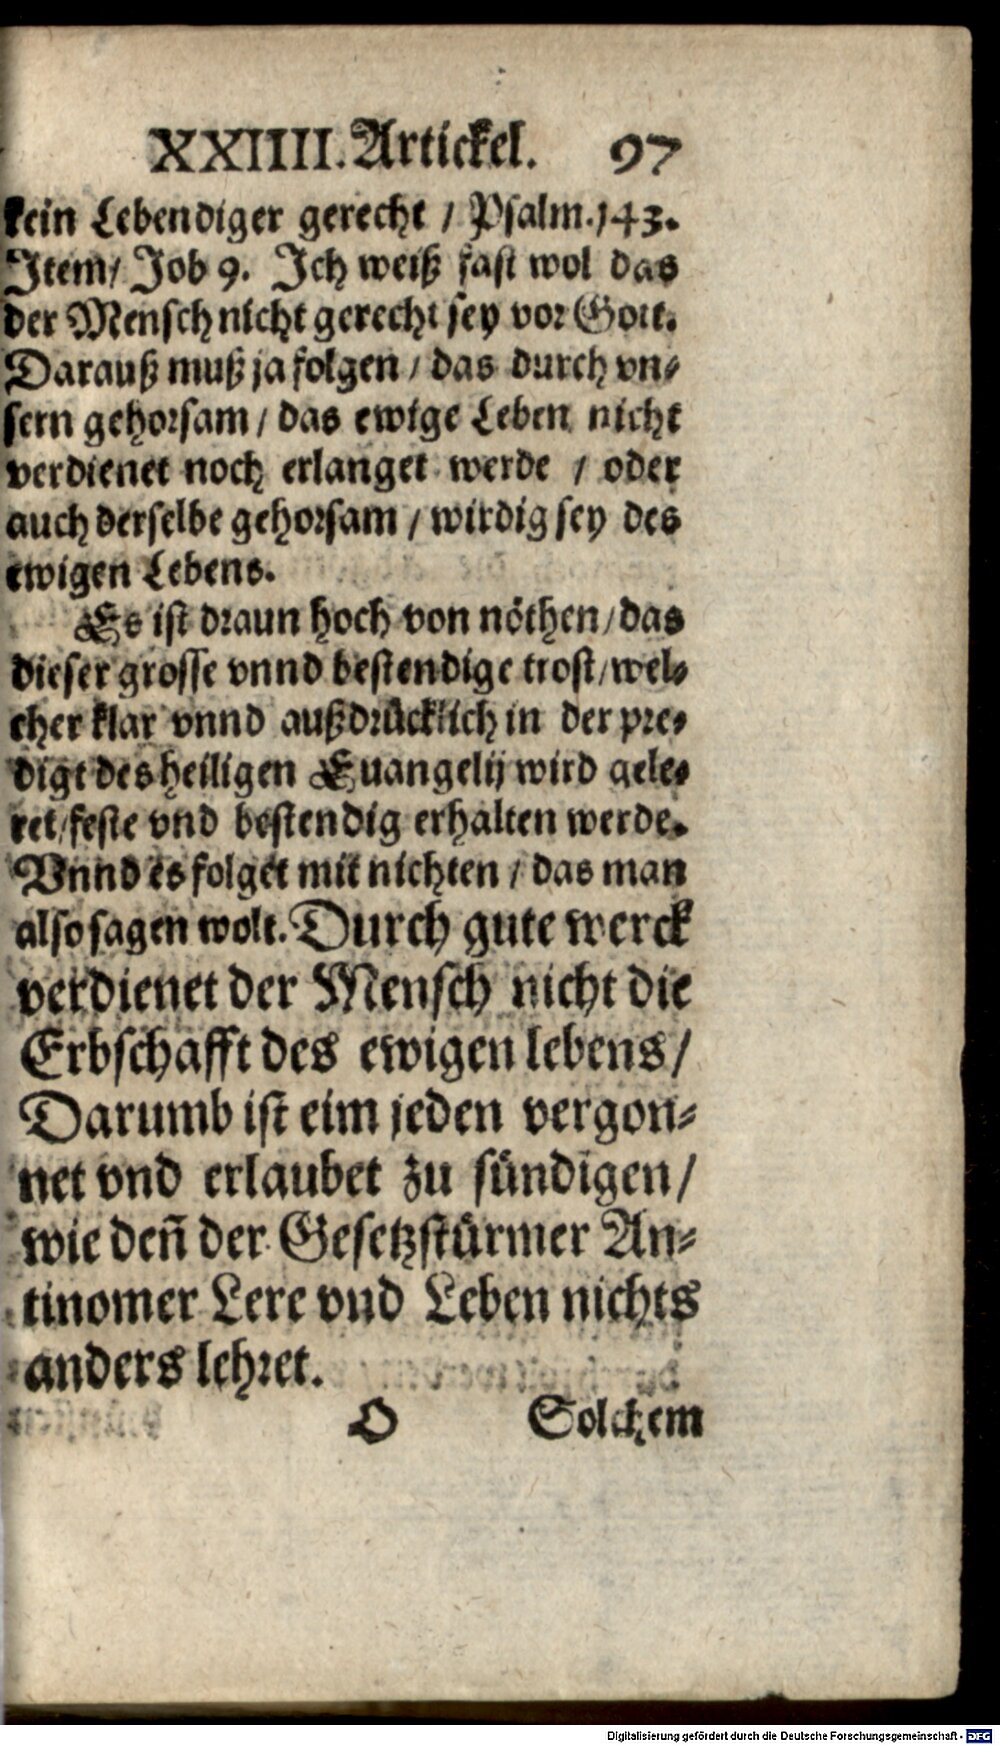 XXIIII. Artickel. 97
kein Lebendiger gerecht / Psalm. 143.
Item / Job 9. Ich weiß fast wol das
der Mensch nicht gerecht sey vor Gott.
Darauß muß ja folgen / das durch vn-
sern gehorsam / das ewige Leben nicht
verdienet noch erlanget werde / oder
auch derselbe gehorsam / wirdig sey des
ewigen Lebens.
Es ist draun hoch von nöthen / das
dieser grosse vnnd bestendige trost / wel-
cher klar vnnd außdrücklich in der pre-
digt des heiligen Euangelij wird gele-
ret / feste vnd bestendig erhalten werde.
Vnnd es folget mit nichten / das man
also sagen wolt. Durch gute werck
verdienet der Mensch nicht die
Erbschafft des ewigen lebens /
Darumb ist eim jeden vergon-
net vnd erlaubet zu sündigen /
wie deñ der Gesetzstürmer An-
tinomer Lere vnd Leben nichts
anders lehret.
O Solchem
Digitalisierung gefördert durch die Deutsche Forschungsgemeinschaft - DFG